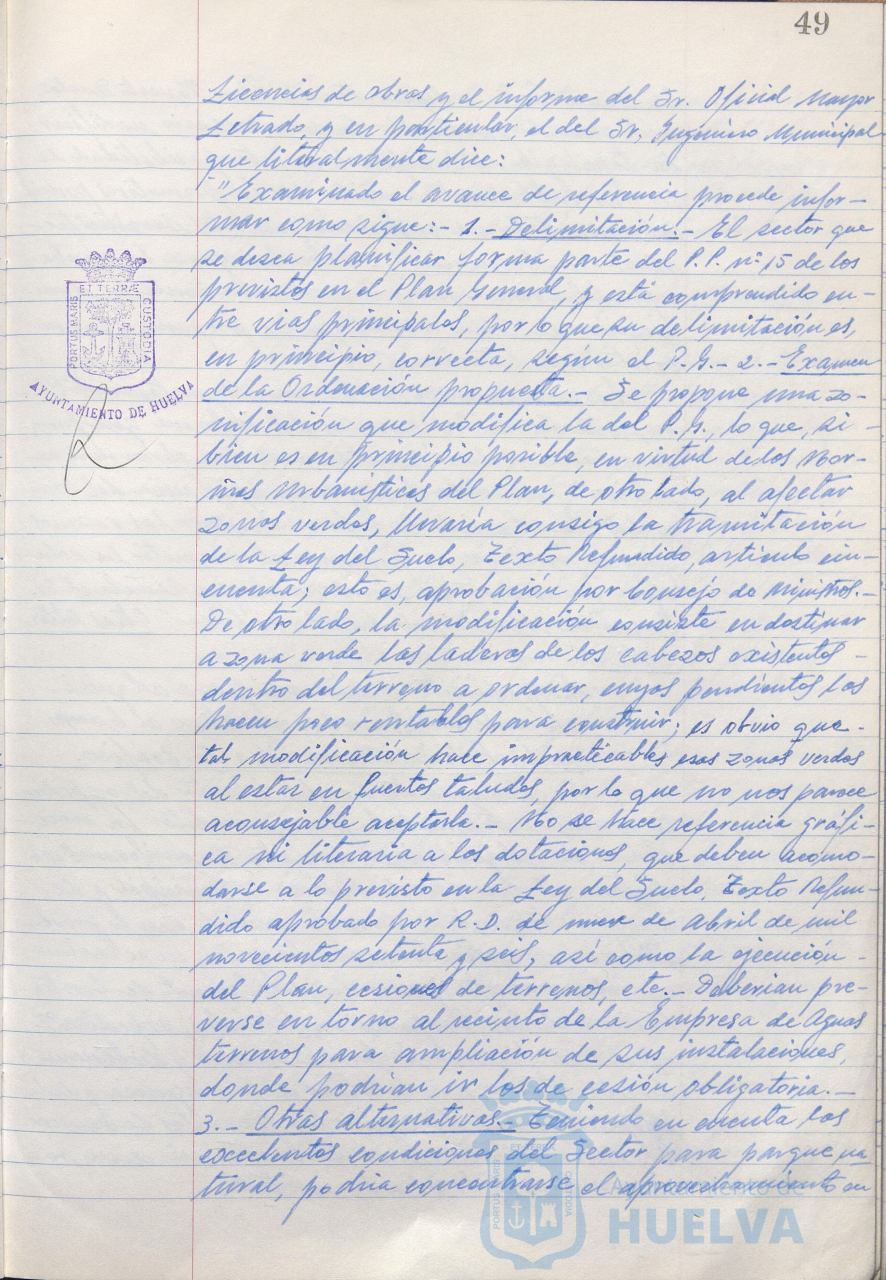 49
Licencias de obras y el informe del Sr. Oficial Mayor
Letrado, y en particular, el del Sr. Ingeniero Municipal
que literalmente dice:
"Examinado el avance de referencia procede infor-
mar como sigue:- 1.- Delimitación.- El sector que
se desea planificar forma parte del P.P. nº 15 de los
previstos en el Plan General, y está comprendido en-
tre vias principales, por lo que su delimitación es,
en principio, correcta, según el P.G.- 2.- Examen
de la Ordenación propuesta.- Se propone una zo-
nificación que modifica la del P.G., lo que, si-
bien es en principio posible, en virtud de las Nor-
mas Urbanisticas del Plan, de otro lado, al afectar
zonas verdes, llevaría consigo la tramitación
de la Ley del Suelo, Texto Refundido, articulo cin-
cuenta; esto es, aprobación por Consejo de Ministros.-
De otro lado, la modificación consiste en destinar
a zona verde las laderas de los cabezos existentes -
dentro del terreno a ordenar, cuyas pendientes las
hacen poco rentables para construir; es obvio que-
tal modificación hace impracticables esas zonas verdes
al estar en fuertes taludes, por lo que no nos parece
aconsejable aceptarla.- No se hace referencia gráfi-
ca ni literaria a las dotaciones, que deben acomo-
darse a lo previsto en la Ley del Suelo, Texto Refun-
dido aprobado por R.D. de nueve de Abril de mil
novecientos setenta y seis, así como la ejecución -
del Plan, cesiones de terrenos, etc.- Deberian pre-
verse en torno al recinto de la Empresa de Aguas
terrenos para ampliación de sus instalaciones,
donde podrían ir los de cesión obligatoria.-
3.- Otras alternativas.- Teniendo en cuenta las
excelentes condiciones del Sector para parque na-
tural, podria concentrarse el aprovechamiento en
PORTUS MARIS
ET TERRÆ
CUSTODIA
AYUNTAMIENTO DE HUELVA
PORTUS MARIS
ET TERRÆ
CUSTODIA
Ayuntamiento de
HUELVA